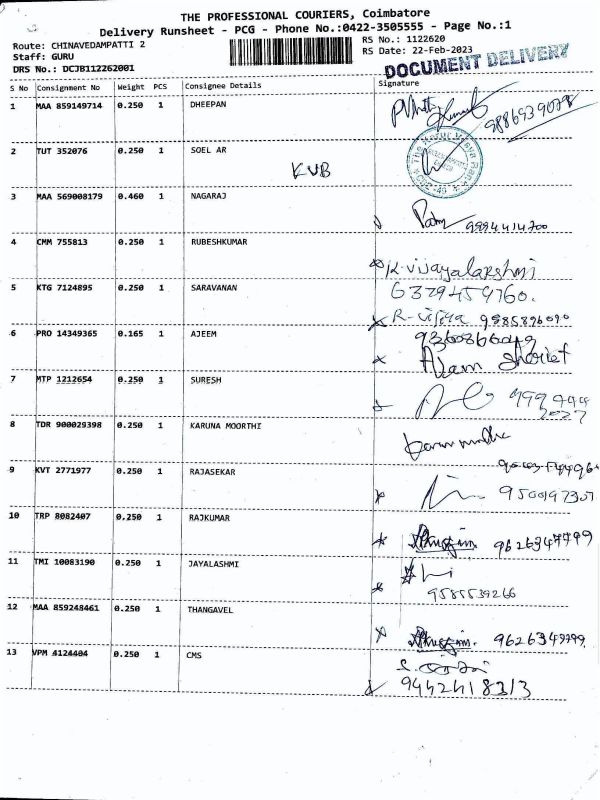 THE PROFESSIONAL COURIERS, Coimbatore
Delivery Runsheet - PCG - Phone No.:0422-3505555 - Page No.:1
Route: CHINAVEDAMPATTI 2 RS No.: 1122620
Staff: GURU RS Date: 22-Feb-2023
DRS No.: DCJB112262001 DOCUMENT DELIVERY
S No Consignment No Weight PCS Consignee Details Signature
1 MAA 859149714 0.250 1 DHEEPAN
9886939078
2 TUT 352076 0.250 1 SOEL AR
KVB
3 MAA 569008179 0.460 1 NAGARAJ
9994414700
4 CMM 755813 0.250 1 RUBESHKUMAR
K. Vijayalakshmi
5 KTG 7124895 0.250 1 SARAVANAN
6379459760.
R-Vijiya
6 PRO 14349365 0.165 1 AJEEM
7 MTP 1212654 0.250 1 SURESH
8 TDR 900029398 0.250 1 KARUNA MOORTHI
9 KVT 2771977 0.250 1 RAJASEKAR
10 TRP 8082407 0.250 1 RAJKUMAR
11 TMI 10083190 0.250 1 JAYALASHMI
9585539266
12 MAA 859248461 0.250 1 THANGAVEL
13 VPM 4124404 0.250 1 CMS
9442418313